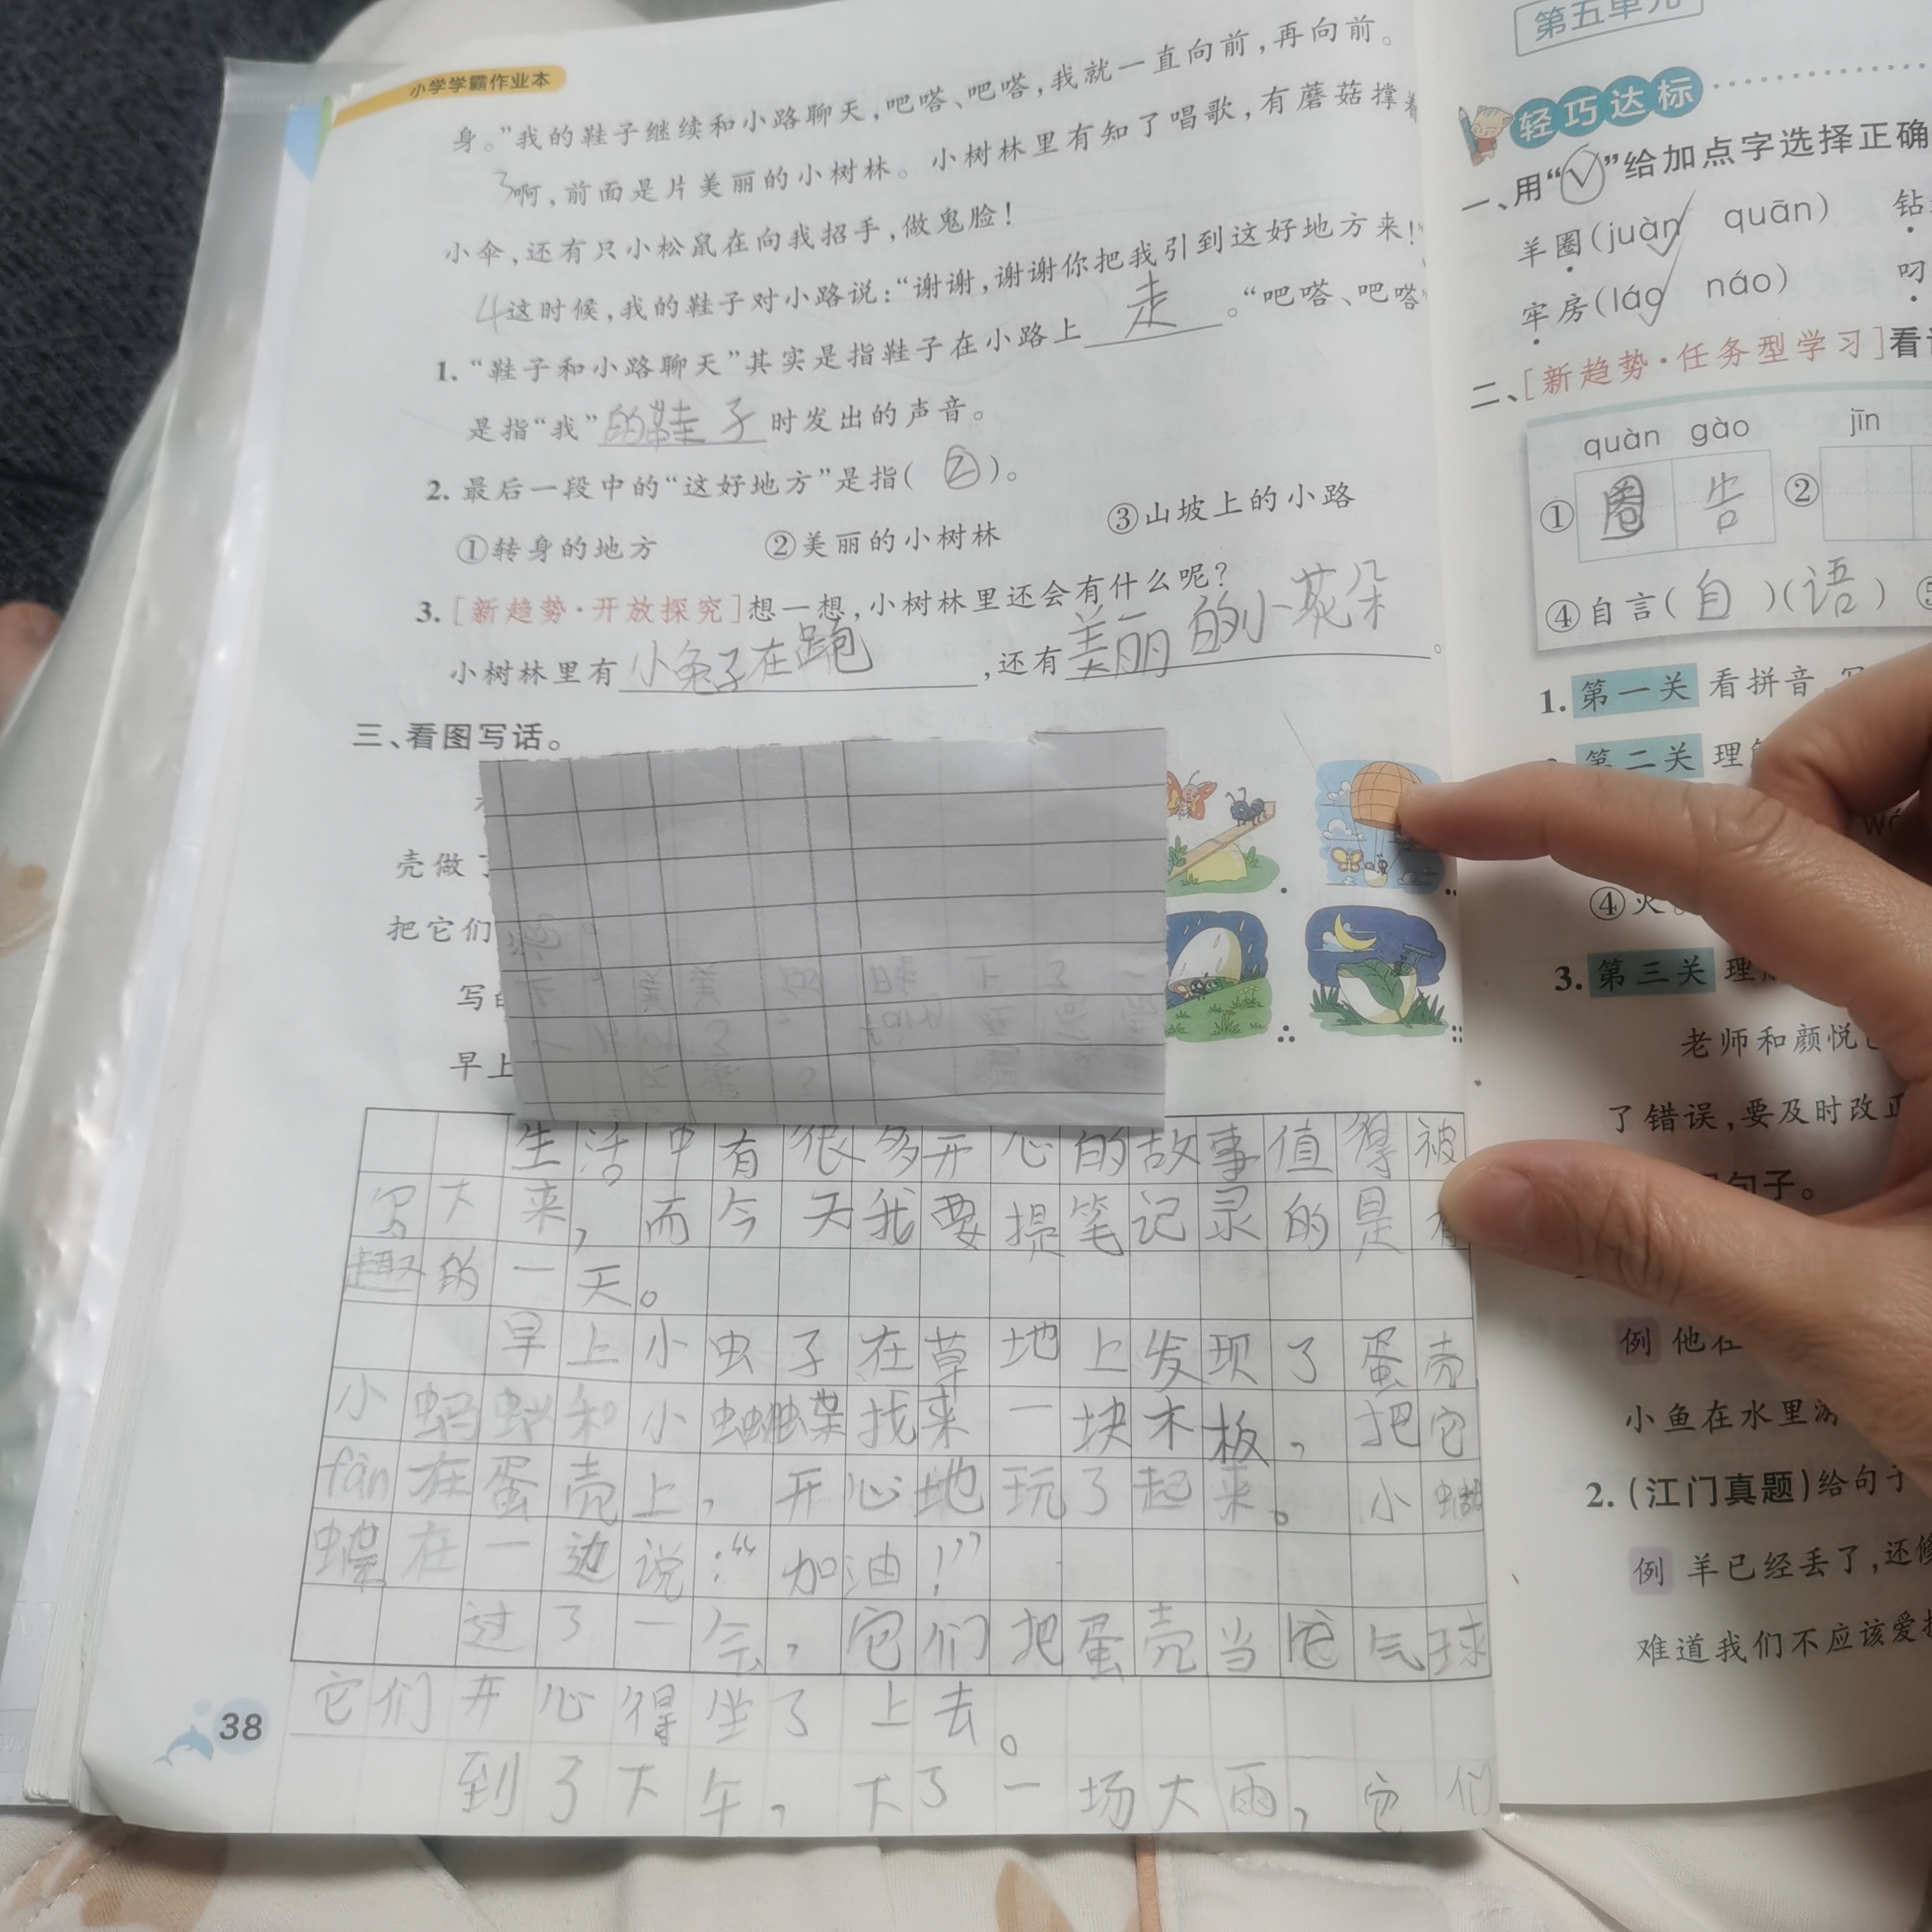 小学学霸作业本
身。”我的鞋子继续和小路聊天，吧嗒、吧嗒，我就一直向前，再向前。
3啊，前面是片美丽的小树林。小树林里有知了唱歌，有蘑菇撑着
小伞，还有只小松鼠在向我招手，做鬼脸！
4这时候，我的鞋子对小路说：“谢谢，谢谢你把我引到这好地方来！”
1. “鞋子和小路聊天”其实是指鞋子在小路上走。“吧嗒、吧嗒”
是指“我”的鞋子时发出的声音。
2. 最后一段中的“这好地方”是指(②)。
①转身的地方 ②美丽的小树林 ③山坡上的小路
3. [新趋势·开放探究]想一想，小树林里还会有什么呢？
小树林里有小兔子在跑，还有美丽的小花朵。
三、看图写话。
壳做了
把它们
写
早上
生活中有很多开心的故事值得被
写下来，而今天我要提笔记录的是有
趣的一天。
早上小虫子在草地上发现了蛋壳
小蚂蚁和小蝴蝶找来一块木板，把它
fàn在蛋壳上，开心地玩了起来。小蝴
蝶在一边说：“加油！”
过了一会，它们把蛋壳当 气球
它们开心得坐了上去。
到了下午，下了一场大雨，它们
38
第五单元
轻巧达标
一、用“√”给加点字选择正确
羊圈(juàn✓ quān) 钻
牢房(láo✓ náo) 叼
二、[新趋势·任务型学习]看
quàn gào jīn
①圈告 ②
④自言(自)(语) ⑤
1. 第一关 看拼音，写
第二关 理
④火
3. 第三关 理
老师和颜悦
了错误，要及时改正
句子。
例 他在
小鱼在水里游
2. (江门真题)给句子
例 羊已经丢了，还修
难道我们不应该爱护